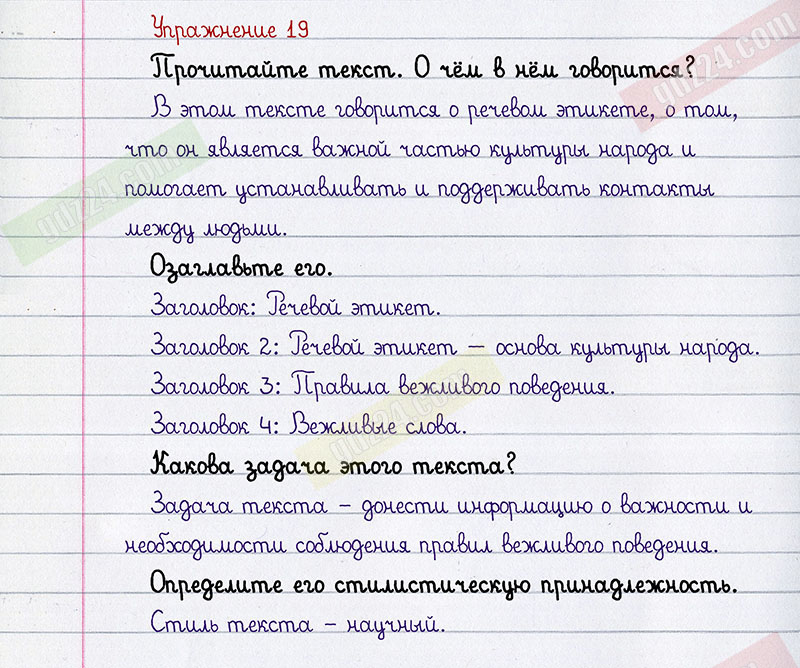 Упражнение 19
Прочитайте текст. О чём в нём говорится?
В этом тексте говорится о речевом этикете, о том,
что он является важной частью культуры народа и
помогает устанавливать и поддерживать контакты
между людьми.
Озаглавьте его.
Заголовок: Речевой этикет.
Заголовок 2: Речевой этикет – основа культуры народа.
Заголовок 3: Правила вежливого поведения.
Заголовок 4: Вежливые слова.
Какова задача этого текста?
Задача текста – донести информацию о важности и
необходимости соблюдения правил вежливого поведения.
Определите его стилистическую принадлежность.
Стиль текста – научный.
gdz24.com
gdz24.com
gdz24.com